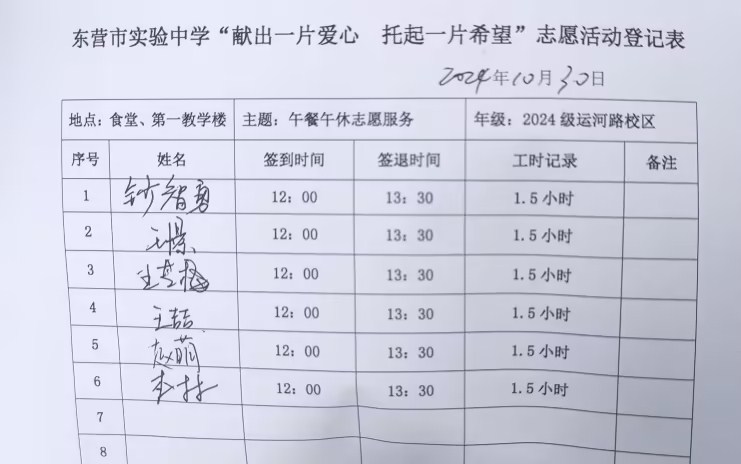 东营市实验中学“献出一片爱心 托起一片希望”志愿活动登记表
2024年10月30日
地点：食堂、第一教学楼 主题：午餐午休志愿服务 年级：2024级运河路校区
序号 姓名 签到时间 签退时间 工时记录 备注
1 12：00 13：30 1.5小时
2 王景 12：00 13：30 1.5小时
3 12：00 13：30 1.5小时
4 王喆 12：00 13：30 1.5小时
5 赵萌 12：00 13：30 1.5小时
6 12：00 13：30 1.5小时
7
8